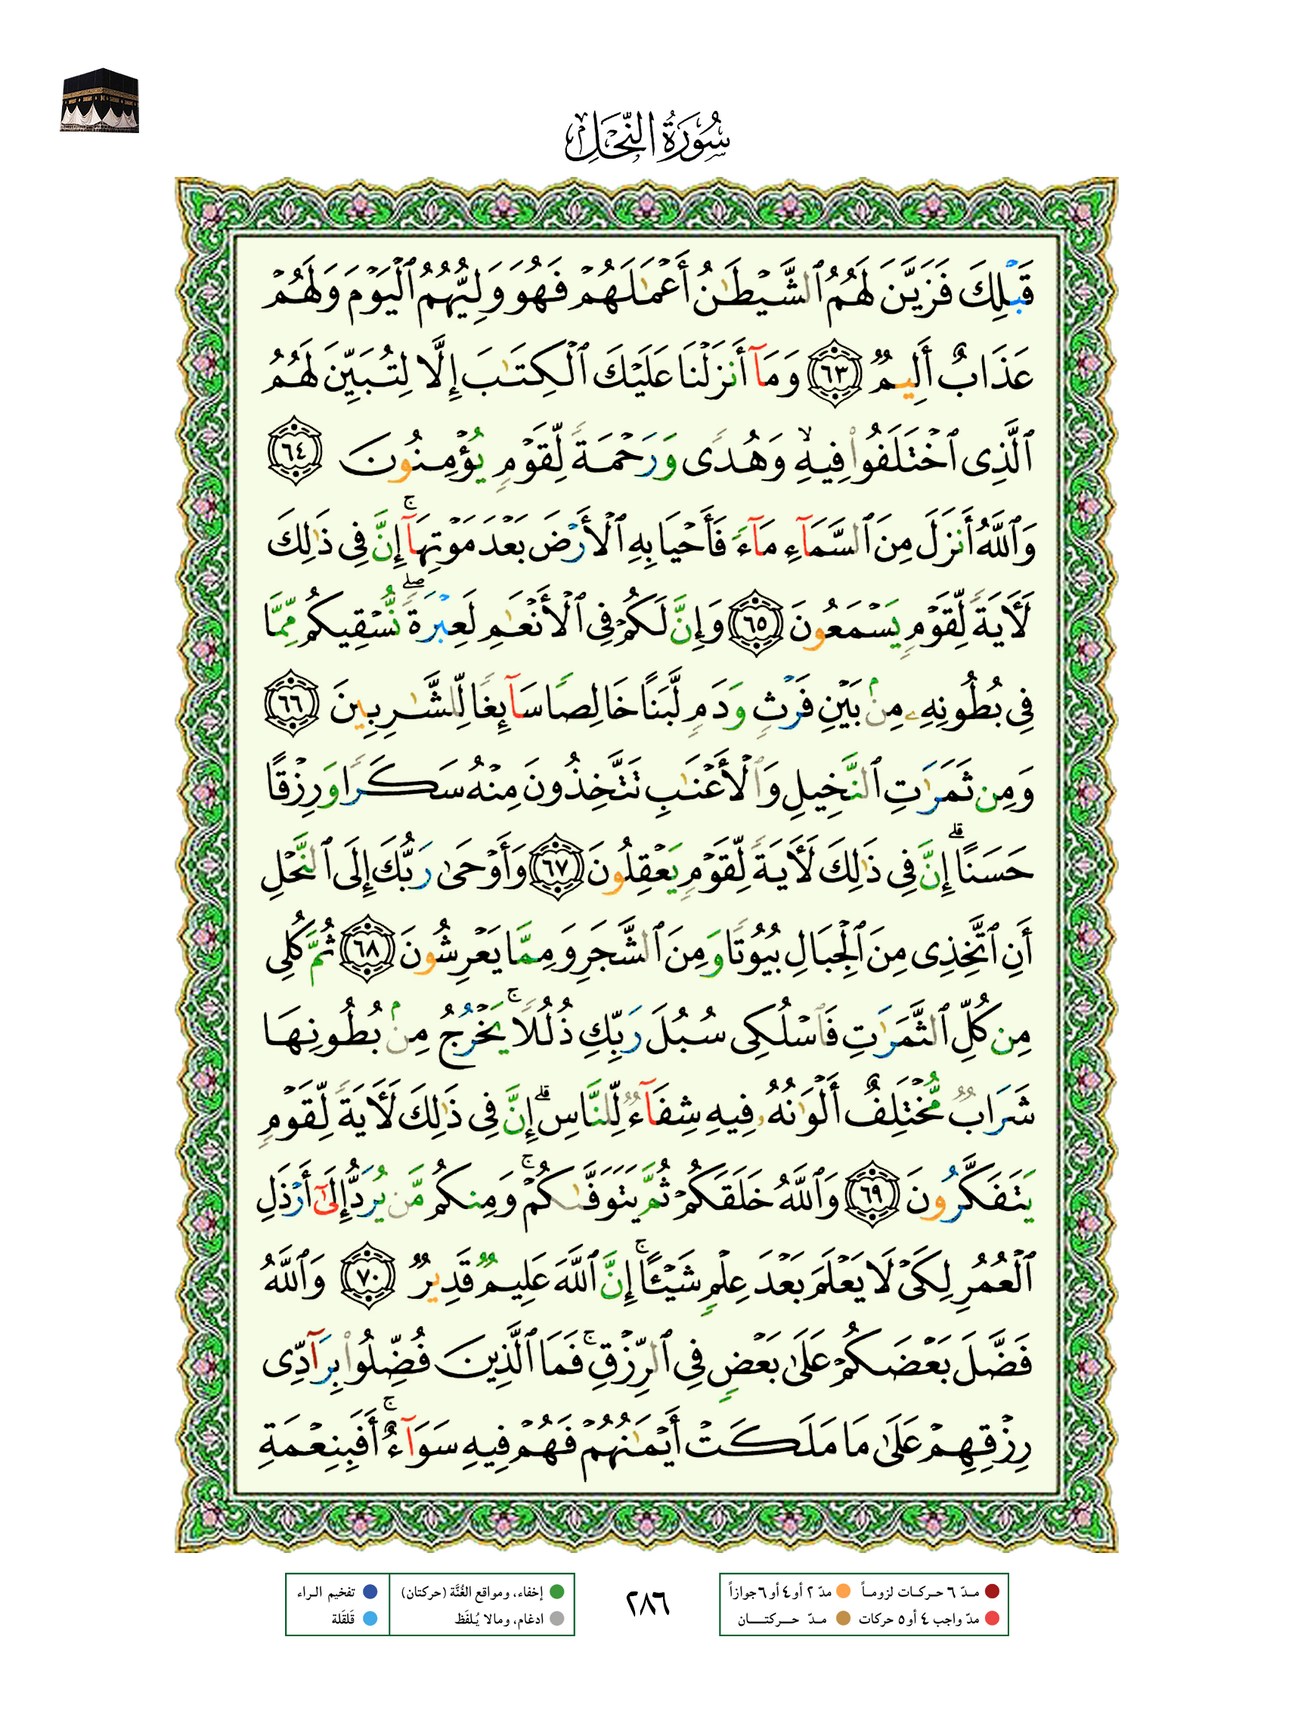 سُورَةُ النَّحْلِ
قَبْلِكَ فَزَيَّنَ لَهُمُ ٱلشَّيْطَٰنُ أَعْمَٰلَهُمْ فَهُوَ وَلِيُّهُمُ ٱلْيَوْمَ وَلَهُمْ
عَذَابٌ أَلِيمٌ ٦٣ وَمَآ أَنزَلْنَا عَلَيْكَ ٱلْكِتَٰبَ إِلَّا لِتُبَيِّنَ لَهُمُ
ٱلَّذِى ٱخْتَلَفُوا۟ فِيهِ ۙ وَهُدًى وَرَحْمَةً لِّقَوْمٍ يُؤْمِنُونَ ٦٤
وَٱللَّهُ أَنزَلَ مِنَ ٱلسَّمَآءِ مَآءً فَأَحْيَا بِهِ ٱلْأَرْضَ بَعْدَ مَوْتِهَآ ۚ إِنَّ فِى ذَٰلِكَ
لَـَٔايَةً لِّقَوْمٍ يَسْمَعُونَ ٦٥ وَإِنَّ لَكُمْ فِى ٱلْأَنْعَٰمِ لَعِبْرَةً ۖ نُّسْقِيكُم مِّمَّا
فِى بُطُونِهِۦ مِنۢ بَيْنِ فَرْثٍ وَدَمٍ لَّبَنًا خَالِصًا سَآئِغًا لِّلشَّٰرِبِينَ ٦٦
وَمِن ثَمَرَٰتِ ٱلنَّخِيلِ وَٱلْأَعْنَٰبِ تَتَّخِذُونَ مِنْهُ سَكَرًا وَرِزْقًا
حَسَنًا ۗ إِنَّ فِى ذَٰلِكَ لَـَٔايَةً لِّقَوْمٍ يَعْقِلُونَ ٦٧ وَأَوْحَىٰ رَبُّكَ إِلَى ٱلنَّحْلِ
أَنِ ٱتَّخِذِى مِنَ ٱلْجِبَالِ بُيُوتًا وَمِنَ ٱلشَّجَرِ وَمِمَّا يَعْرِشُونَ ٦٨ ثُمَّ كُلِى
مِن كُلِّ ٱلثَّمَرَٰتِ فَٱسْلُكِى سُبُلَ رَبِّكِ ذُلُلًا ۚ يَخْرُجُ مِنۢ بُطُونِهَا
شَرَابٌ مُّخْتَلِفٌ أَلْوَٰنُهُۥ فِيهِ شِفَآءٌ لِّلنَّاسِ ۗ إِنَّ فِى ذَٰلِكَ لَـَٔايَةً لِّقَوْمٍ
يَتَفَكَّرُونَ ٦٩ وَٱللَّهُ خَلَقَكُمْ ثُمَّ يَتَوَفَّىٰكُمْ ۚ وَمِنكُم مَّن يُرَدُّ إِلَىٰٓ أَرْذَلِ
ٱلْعُمُرِ لِكَىْ لَا يَعْلَمَ بَعْدَ عِلْمٍ شَيْـًٔا ۚ إِنَّ ٱللَّهَ عَلِيمٌ قَدِيرٌ ٧٠ وَٱللَّهُ
فَضَّلَ بَعْضَكُمْ عَلَىٰ بَعْضٍ فِى ٱلرِّزْقِ ۚ فَمَا ٱلَّذِينَ فُضِّلُوا۟ بِرَآدِّى
رِزْقِهِمْ عَلَىٰ مَا مَلَكَتْ أَيْمَٰنُهُمْ فَهُمْ فِيهِ سَوَآءٌ ۚ أَفَبِنِعْمَةِ
مدّ ٦ حركات لزوماً مدّ ٢ أو ٤ أو ٦ جوازاً
مدّ واجب ٤ أو ٥ حركات مدّ حركتان
٢٨٦
إخفاء، ومواقع الغُنَّة (حركتان) تفخيم الراء
ادغام، ومالا يُلفَظ قلقَلة